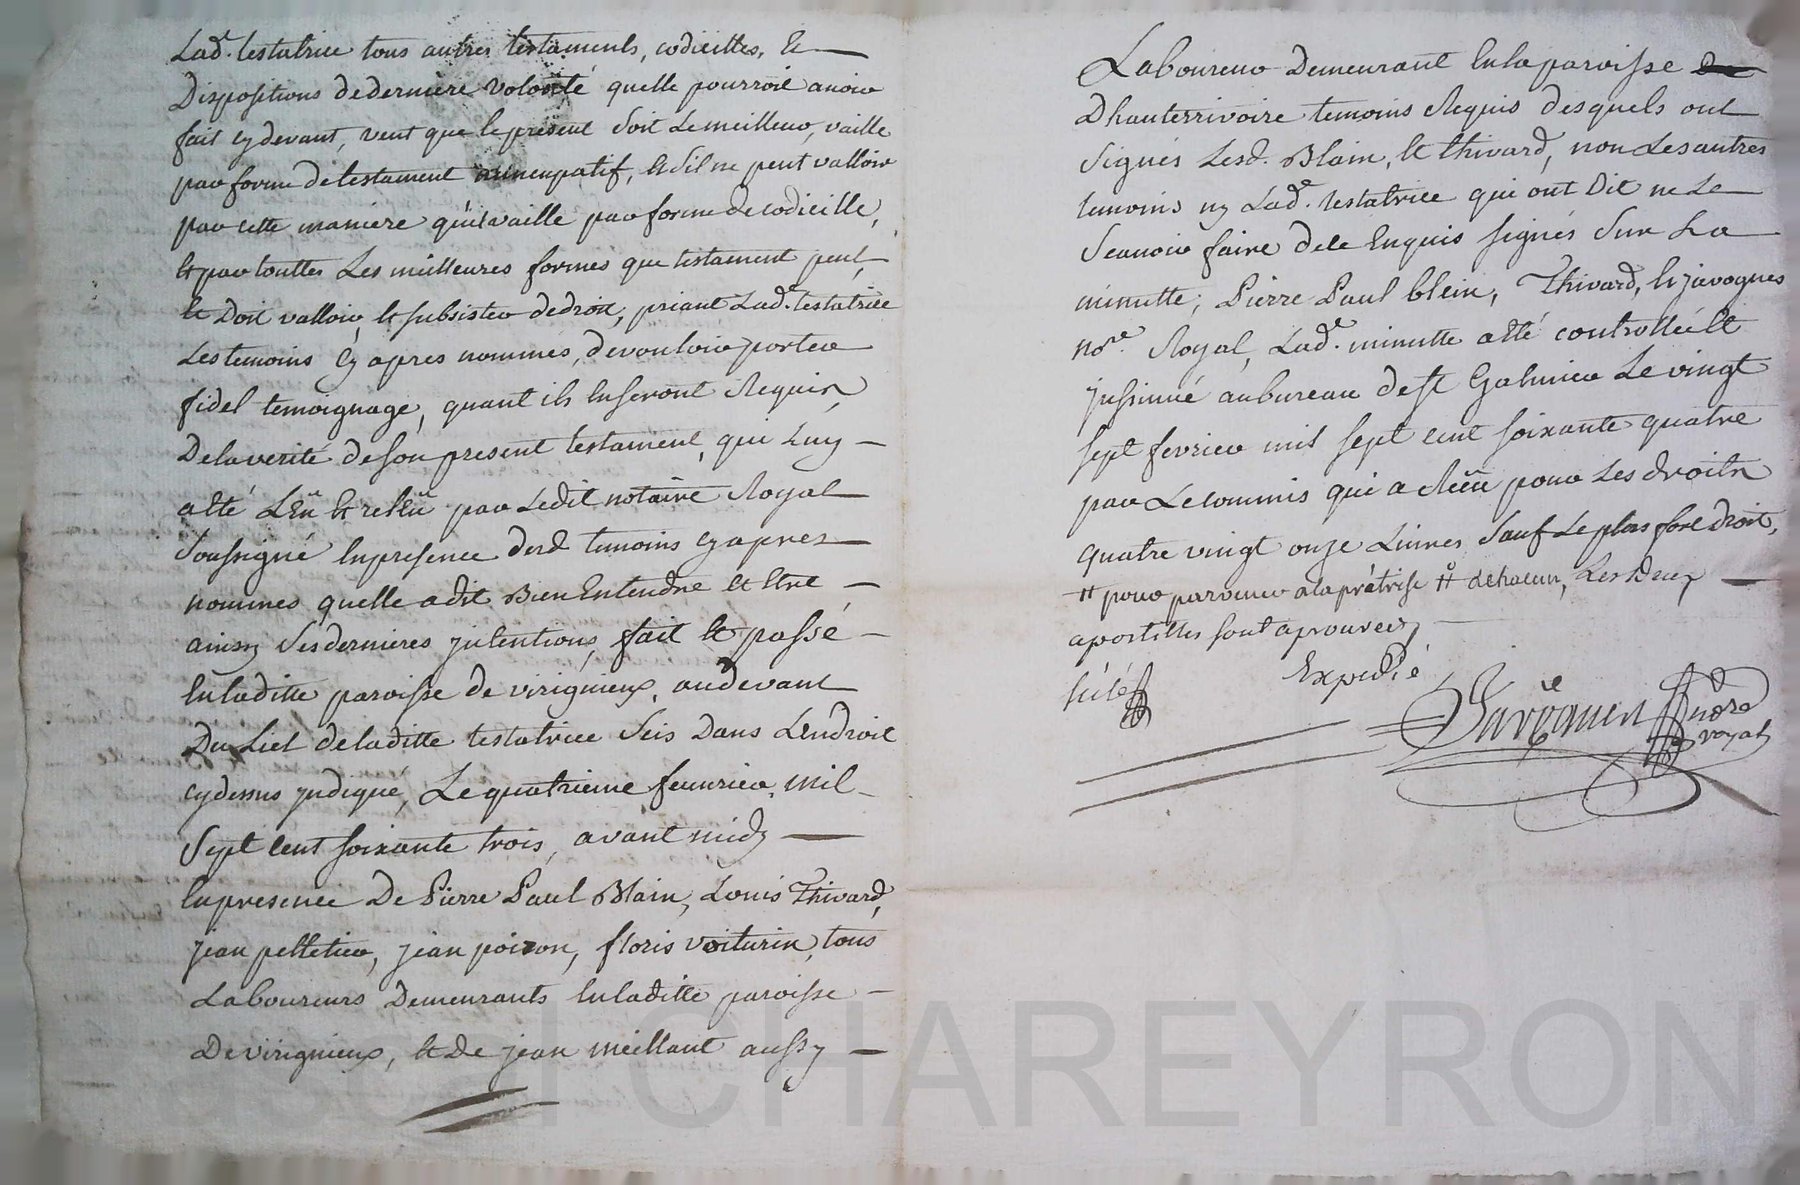 Lad.e testatrice tous autres testaments, codicilles, Et
Dispositions de derniere volonté quelle pourroit avoir
fait cy devant, veut que le present soit Le meilleur, vaille
par forme de testament nuncupatif, et sil ne peut valloir
par cette maniere qu'il vaille par forme de codicille,
et par touttes Les meilleures formes que testament peut
et Doit valloir, et subsister de droit, priant Lad.e testatrice
Les temoins Cy apres nommés, de vouloir porter
fidel temoignage, quant ils En seront Requis,
De la verité de son present testament, qui Luy
a été Leü et releü par Ledit notaire Royal
Soussigné En presence desd temoins cy apres
nommés quelle a dit Bien Entendre et Etre
ainsy Ses dernieres jntentions, fait et passé
En laditte paroisse de virignieux, au devant
Du Liet de laditte testatrice Seis Dans L'endroit
cy dessus jndiqué, Le quatrieme feuvrier, mil
Sept cent soixante trois, avant midy
En presence De Pierre Paul Blain, Louis Thivard,
jean pelletier, jean poizon, floris voiturin, tous
Laboureurs Demeurants En laditte paroisse
De virignieux, et De jean meillant aussy
Laboureur Demeurant En la paroisse De
Dhauterrivoire temoins Requis desquels ont
Signés Lesd. Blain, et thivard, non Les autres
temoins ny Lad.e testatrice qui ont Dit ne Le
Scavoir faire de ce Enquis signés Sur La
minutte; Pierre Paul blein, Thivard, et javogues
no.re Royal, Lad.e minutte a été controllée et
jnsinué au bureau de St Galmier Le vingt
sept fevrier mil sept cent soixante quatre
par Le commis qui a Reçu pour Les droits
quatre vingt onze Livres Sauf Le plus fort droit,
# pour parvenir a la prêtrise # de chacun, Les deux
apostilles sont aprouvées,
Expedié
Javogues
no.re
royal